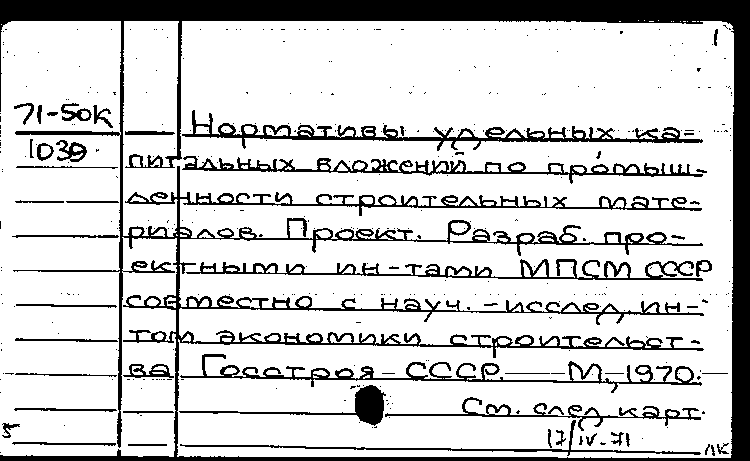 1
71-50К
1039
Нормативы удельных ка-
питальных вложений по промыш-
ленности строительных мате-
риалов. Проект. Разраб. про-
ектными ин-тами МПСМ СССР
совместно с науч.-исслед. ин-
том экономики строительст-
ва Госстроя СССР. М., 1970.
См. след. карт.
5
17/IV-71
ЛК